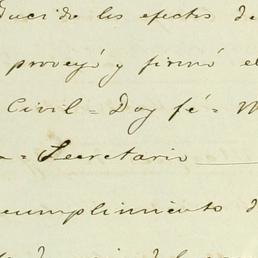 ducido los efectos de
proveyó y firmó el
Civil = Doy fé =
= Secretario
cumplimiento d